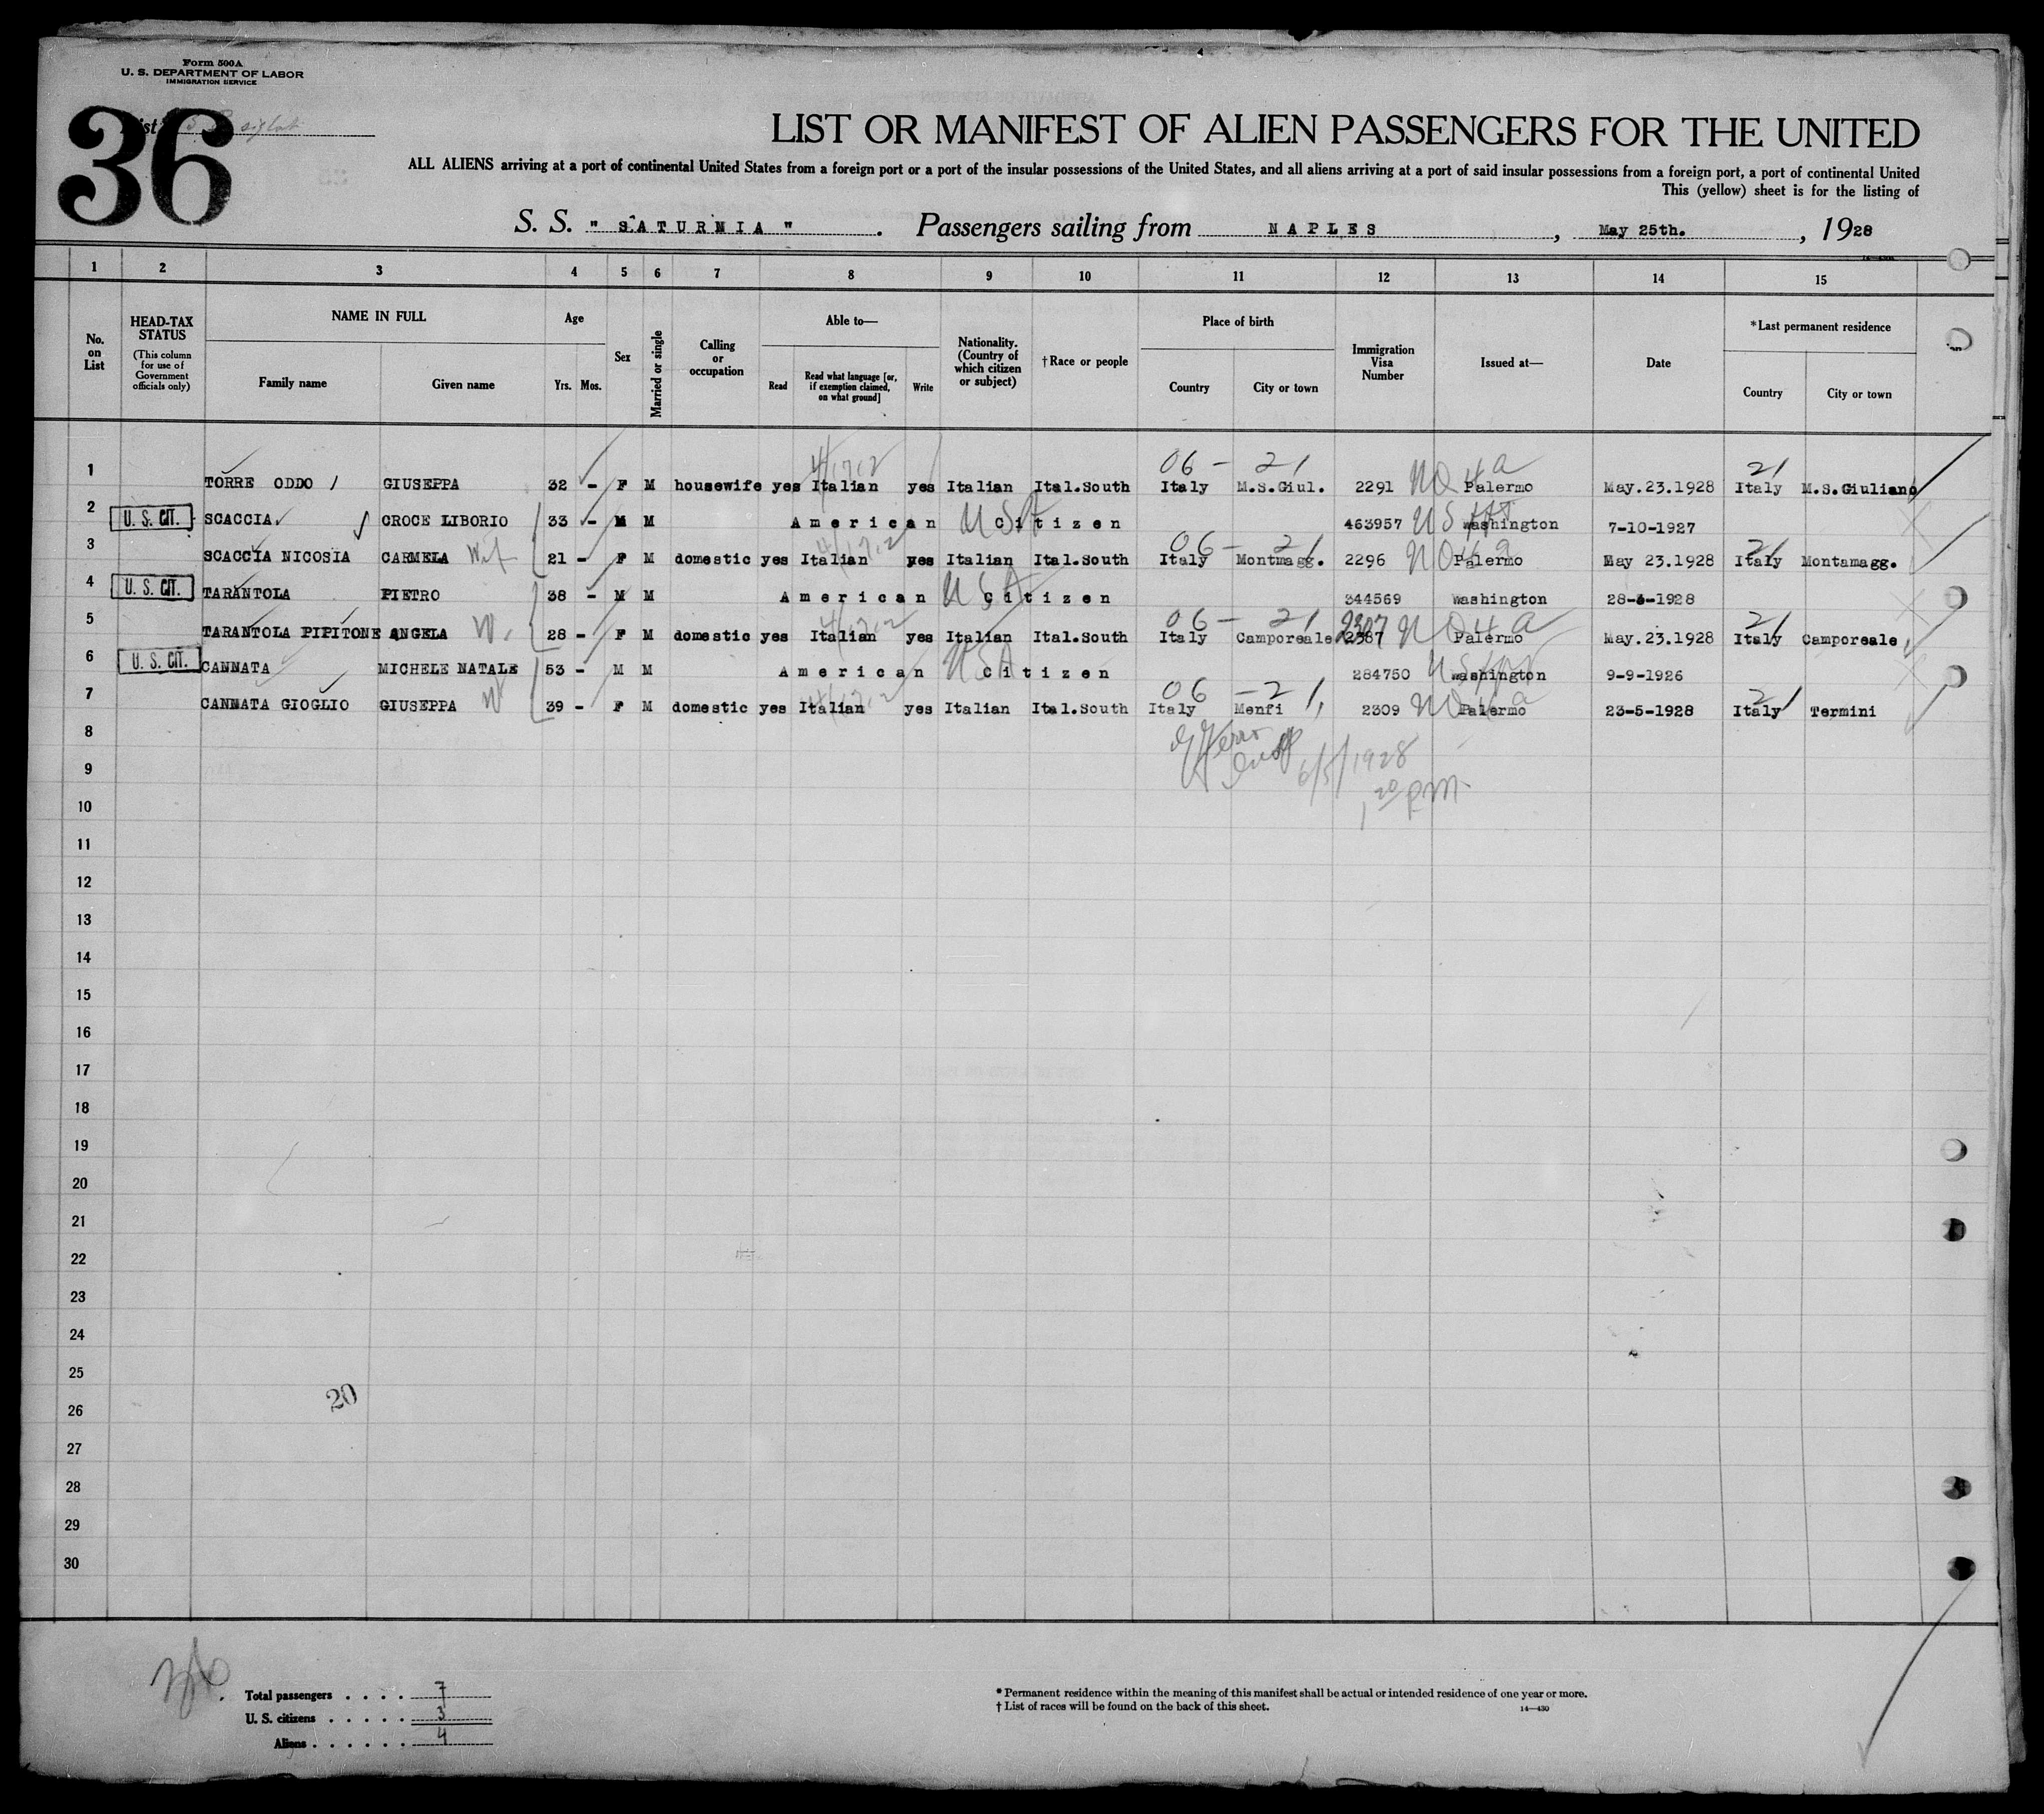 Form 500A
U. S. DEPARTMENT OF LABOR
IMMIGRATION SERVICE
36
LIST OR MANIFEST OF ALIEN PASSENGERS FOR THE UNITED
ALL ALIENS arriving at a port of continental United States from a foreign port or a port of the insular possessions of the United States, and all aliens arriving at a port of said insular possessions from a foreign port, a port of continental United
This (yellow) sheet is for the listing of
S. S. " SATURNIA " . Passengers sailing from NAPLES , May 25th. , 1928
1 2 3 4 5 6 7 8 9 10 11 12 13 14 15
No. on List
HEAD-TAX STATUS
(This column for use of Government officials only)
NAME IN FULL
Family name
Given name
Age
Yrs. Mos.
Sex
Married or single
Calling or occupation
Able to—
Read
Read what language [or, if exemption claimed, on what ground]
Write
Nationality. (Country of which citizen or subject)
†Race or people
Place of birth
Country
City or town
Immigration Visa Number
Issued at—
Date
*Last permanent residence
Country
City or town
06 - 21 NO 4a 21
1 TORRE ODDO GIUSEPPA 32 - F M housewife yes Italian yes Italian Ital.South Italy M.S.Giul. 2291 Palermo May.23.1928 Italy M.S.Giuliano
2 U. S. CIT. SCACCIA CROCE LIBORIO 33 - M M American Citizen USA 463957 Washington 7-10-1927
06 - 21 NO 4a 21
3 SCACCIA NICOSIA CARMELA Wif 21 - F M domestic yes Italian yes Italian Ital.South Italy Montmagg. 2296 Palermo May 23.1928 Italy Montamagg.
4 U. S. CIT. TARANTOLA PIETRO 38 - M M American Citizen USA 344569 Washington 28-3-1928
06 - 21 2307 NO 4a 21
5 TARANTOLA PIPITONE ANGELA W. 28 - F M domestic yes Italian yes Italian Ital.South Italy Camporeale 2387 Palermo May.23.1928 Italy Camporeale
6 U. S. CIT. CANNATA MICHELE NATALE 53 - M M American Citizen USA 284750 Washington 9-9-1926
06 - 21 NO 4a 21
7 CANNATA GIOGLIO GIUSEPPA W 39 - F M domestic yes Italian yes Italian Ital.South Italy Menfi 2309 Palermo 23-5-1928 Italy Termini
8
9
6/5/1928
10
1 20 PM
11
12
13
14
15
16
17
18
19
20
21
22
23
24
25
20
26
27
28
29
30
Total passengers . . . . 7
U. S. citizens . . . . . 3
Aliens . . . . . . 4
* Permanent residence within the meaning of this manifest shall be actual or intended residence of one year or more.
† List of races will be found on the back of this sheet.
14—430